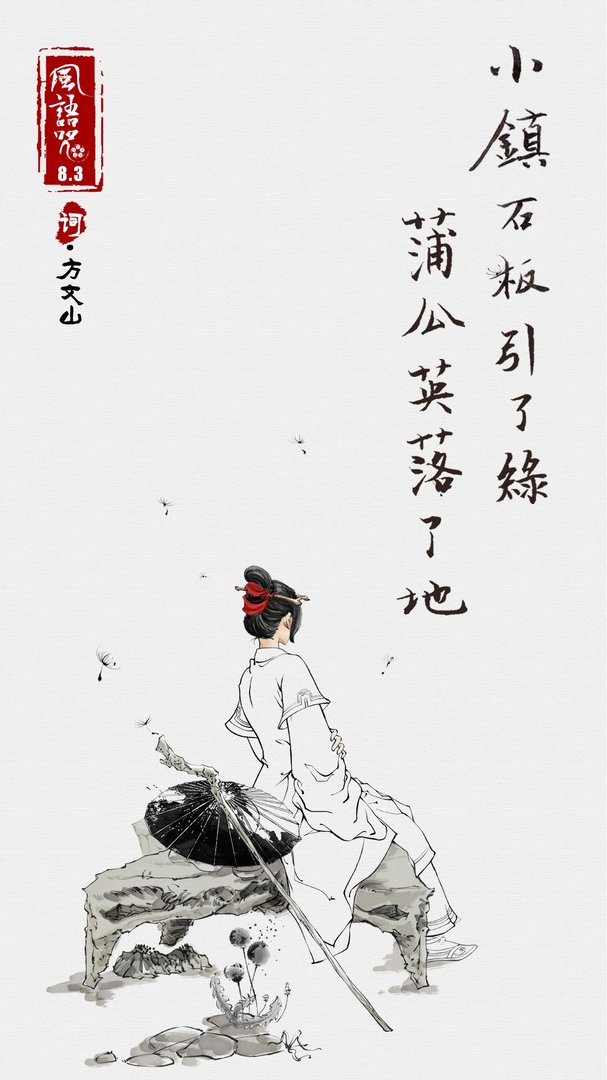 小鎮石板引了綠
蒲公英落了地
風語咒
8.3
词·方文山